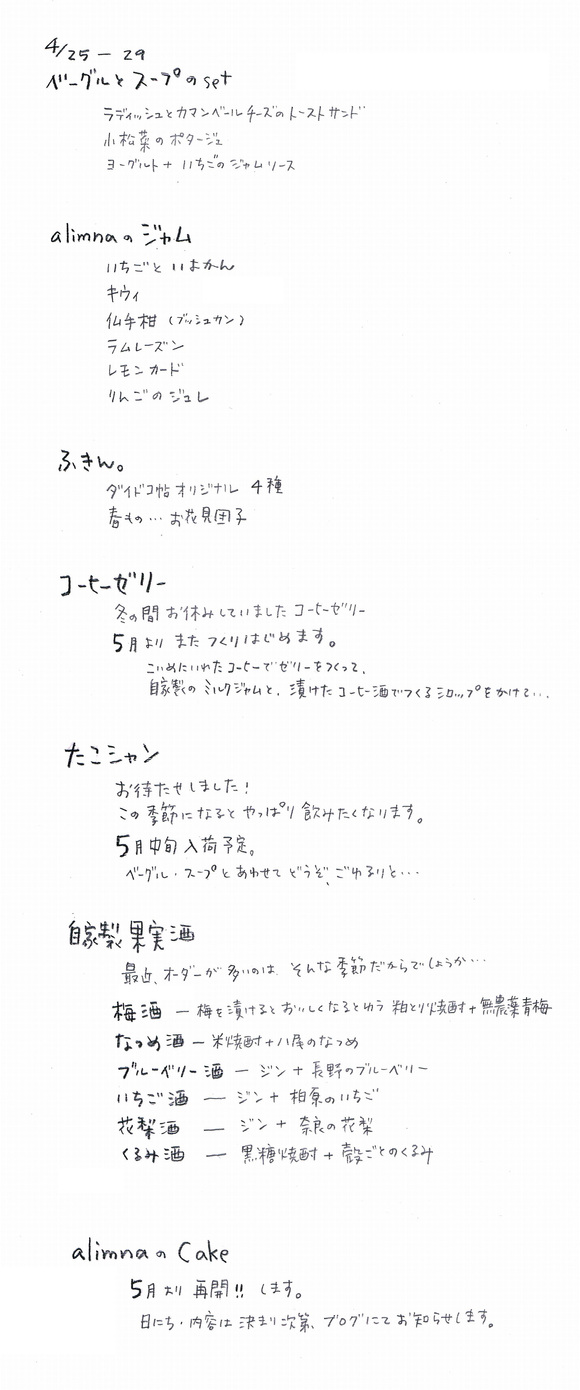 4/25 — 29
ベーグルとスープのset
ラディッシュとカマンベールチーズのトーストサンド
小松菜のポタージュ
ヨーグルト+いちごのジャムソース
alimnaのジャム
いちごといよかん
キウィ
仏手柑(ブッシュカン)
ラムレーズン
レモンカード
りんごのジュレ
ふきん。
ダイドコ帖オリジナル 4種
春もの…お花見団子
コーヒーゼリー
冬の間お休みしていましたコーヒーゼリー
5月よりまたつくりはじめます。
こいめにいれたコーヒーでゼリーをつくって、
自家製のミルクジャムと、漬けたコーヒー酒でつくるシロップをかけて…、
たこシャン
お待たせしました!
この季節になるとやっぱり飲みたくなります。
5月中旬入荷予定。
ベーグル・スープとあわせてどうぞ、ごゆるりと…
自家製果実酒
最近、オーダーが多いのは、そんな季節だからでしょうか…
梅酒 — 梅を漬けるとおいしくなるとゆう粕とり焼酎+無農薬青梅
なつめ酒 — 米焼酎+八尾のなつめ
ブルーベリー酒 — ジン+長野のブルーベリー
いちご酒 — ジン+柏原のいちご
花梨酒 — ジン+奈良の花梨
くるみ酒 — 黒糖焼酎+殻ごとのくるみ
alimnaのCake
5月より再開!!します。
日にち・内容は決まり次第、ブログにてお知らせします。